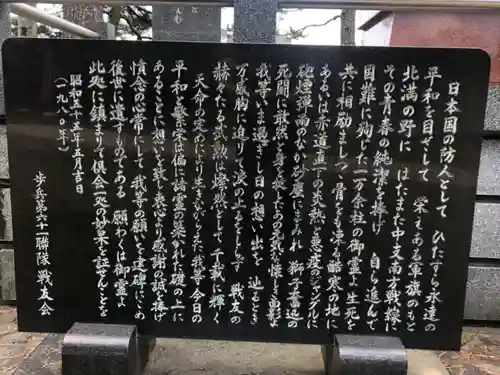 日本国の防人として ひたすら永遠の
平和を目ざして 栄えある軍旗のもと
北満の野に はたまた中支南方戦線に
その青春の純潔を捧げ 自ら進んで
国難に殉じた一万余柱の御霊よ 生死を
共に相励ましつゝ骨をも凍る酷寒の地に
あるいは赤道直下の炎熱と悪疫のジャングルに
砲煙弾雨のなか砂塵にまみれ 獅子奮迅の
死闘に敢然と身を投じたあの元気な懐しき面影よ
我等いま過ぎさりし日の想い出を 辿るとき
万感胸に迫りて涙の上るをしらず 戦友の
赫々たる武勲は燦然として千載に輝く
天命の定めにより生きながらえた我等は今日の
平和と繁栄は偏に諸霊の築かれた礎の上に
あることに想いを致し衷心より感謝の誠を捧げ
憤念の心常にして我等の願いを建碑にこめ
後世に遺すものである 願わくは御霊よ
此処に鎮まりて倶会一処の約束を証せんことを
昭和五十五年五月吉日
(一九八〇年)
歩兵第六十一聯隊 戦友会